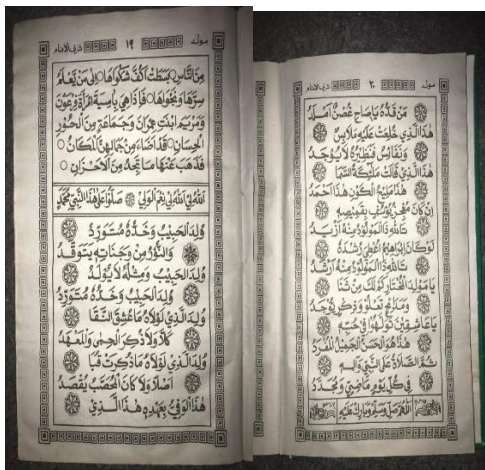 شرف الانام ١٩ مولد
مِنَ النَّاسِ بَسَطَتْ أَكُفَّ شَكْوَاهَا إِلَى مَنْ يَعْلَمُ
سِرَّهَا وَنَجْوَاهَا فَإِذَا هِيَ بِآسِيَةَ امْرَأَةِ فِرْعَوْنَ
وَمَرْيَمَ ابْنَتِ عِمْرَانَ وَجَمَاعَةٍ مِنَ الْحُوْرِ
الْحِسَانِ قَدْ أَضَاءَ مِنْ جَمَالِهِنَّ الْمَكَانُ
فَذَهَبَ عَنْهَا مَا تَجِدُ مِنَ الْأَحْزَانِ
اَللهُ لِيْ اَللهُ لِيْ نِعْمَ الْوَلِيْ صَلُّوْا عَلَى هٰذَا النَّبِيْ مُحَمَّدٍ
وُلِدَ الْحَبِيْبُ وَخَدُّهُ مُتَوَرِّدٌ
وَالنُّوْرُ مِنْ وَجَنَاتِهِ يَتَوَقَّدُ
وُلِدَ الْحَبِيْبُ وَمِثْلُهُ لَا يُوْلَدُ
وُلِدَ الْحَبِيْبُ وَخَدُّهُ مُتَوَرِّدٌ
وُلِدَ الَّذِيْ لَوْلَاهُ مَا عُشِقَ النَّقَا
كَلَّا وَلَا ذُكِرَ الْحِمٰى وَالْمَعْهَدُ
وُلِدَ الَّذِيْ لَوْلَاهُ مَا ذُكِرَتْ قُبَا
أَصْلًا وَلَا كَانَ الْمُحَصَّبُ يُقْصَدُ
هٰذَا الْوَفِيُّ بِعَهْدِهِ هٰذَا الَّذِيْ
شرف الانام ٢٠ مولد
مَنْ قَدُّهُ يَا صَاحِ غُصْنٌ أَمْلَدُ
هٰذَا الَّذِيْ خُلِعَتْ عَلَيْهِ مَلَابِسٌ
وَنَفَائِسٌ فَنَظِيْرُهُ لَا يُوْجَدُ
هٰذَا الَّذِيْ قَالَتْ مَلَائِكَةُ السَّمَا
هٰذَا مَلِيْحُ الْكَوْنِ هٰذَا أَحْمَدُ
إِنْ كَانَ مُعْجِزُ يُوْسُفٍ بِقَمِيْصِهِ
تَاللهِ ذَا الْمَوْلُوْدُ مِنْهُ أَزْيَدُ
لَوْ كَانَ إِبْرَاهِيْمُ أُعْطِيَ رُشْدَهُ
تَاللهِ ذَا الْمَوْلُوْدُ مِنْهُ أَرْشَدُ
يَا مَوْلِدَ الْمُخْتَارِ كَمْ لَكَ مِنْ ثَنَا
وَمَدَائِحٍ تَعْلُوْ وَذِكْرٍ يُوْجَدُ
يَا عَاشِقِيْنَ تَوَلَّهُوْا فِيْ حُبِّهِ
هٰذَا هُوَ الْحَسَنُ الْجَمِيْلُ الْمُفْرَدُ
ثُمَّ الصَّلَاةُ عَلَى النَّبِيِّ وَآلِهِ
فِيْ كُلِّ يَوْمٍ مَاضِيٍ وَيُجَدَّدُ
اَللّٰهُمَّ صَلِّ وَسَلِّمْ وَبَارِكْ عَلَيْهِ